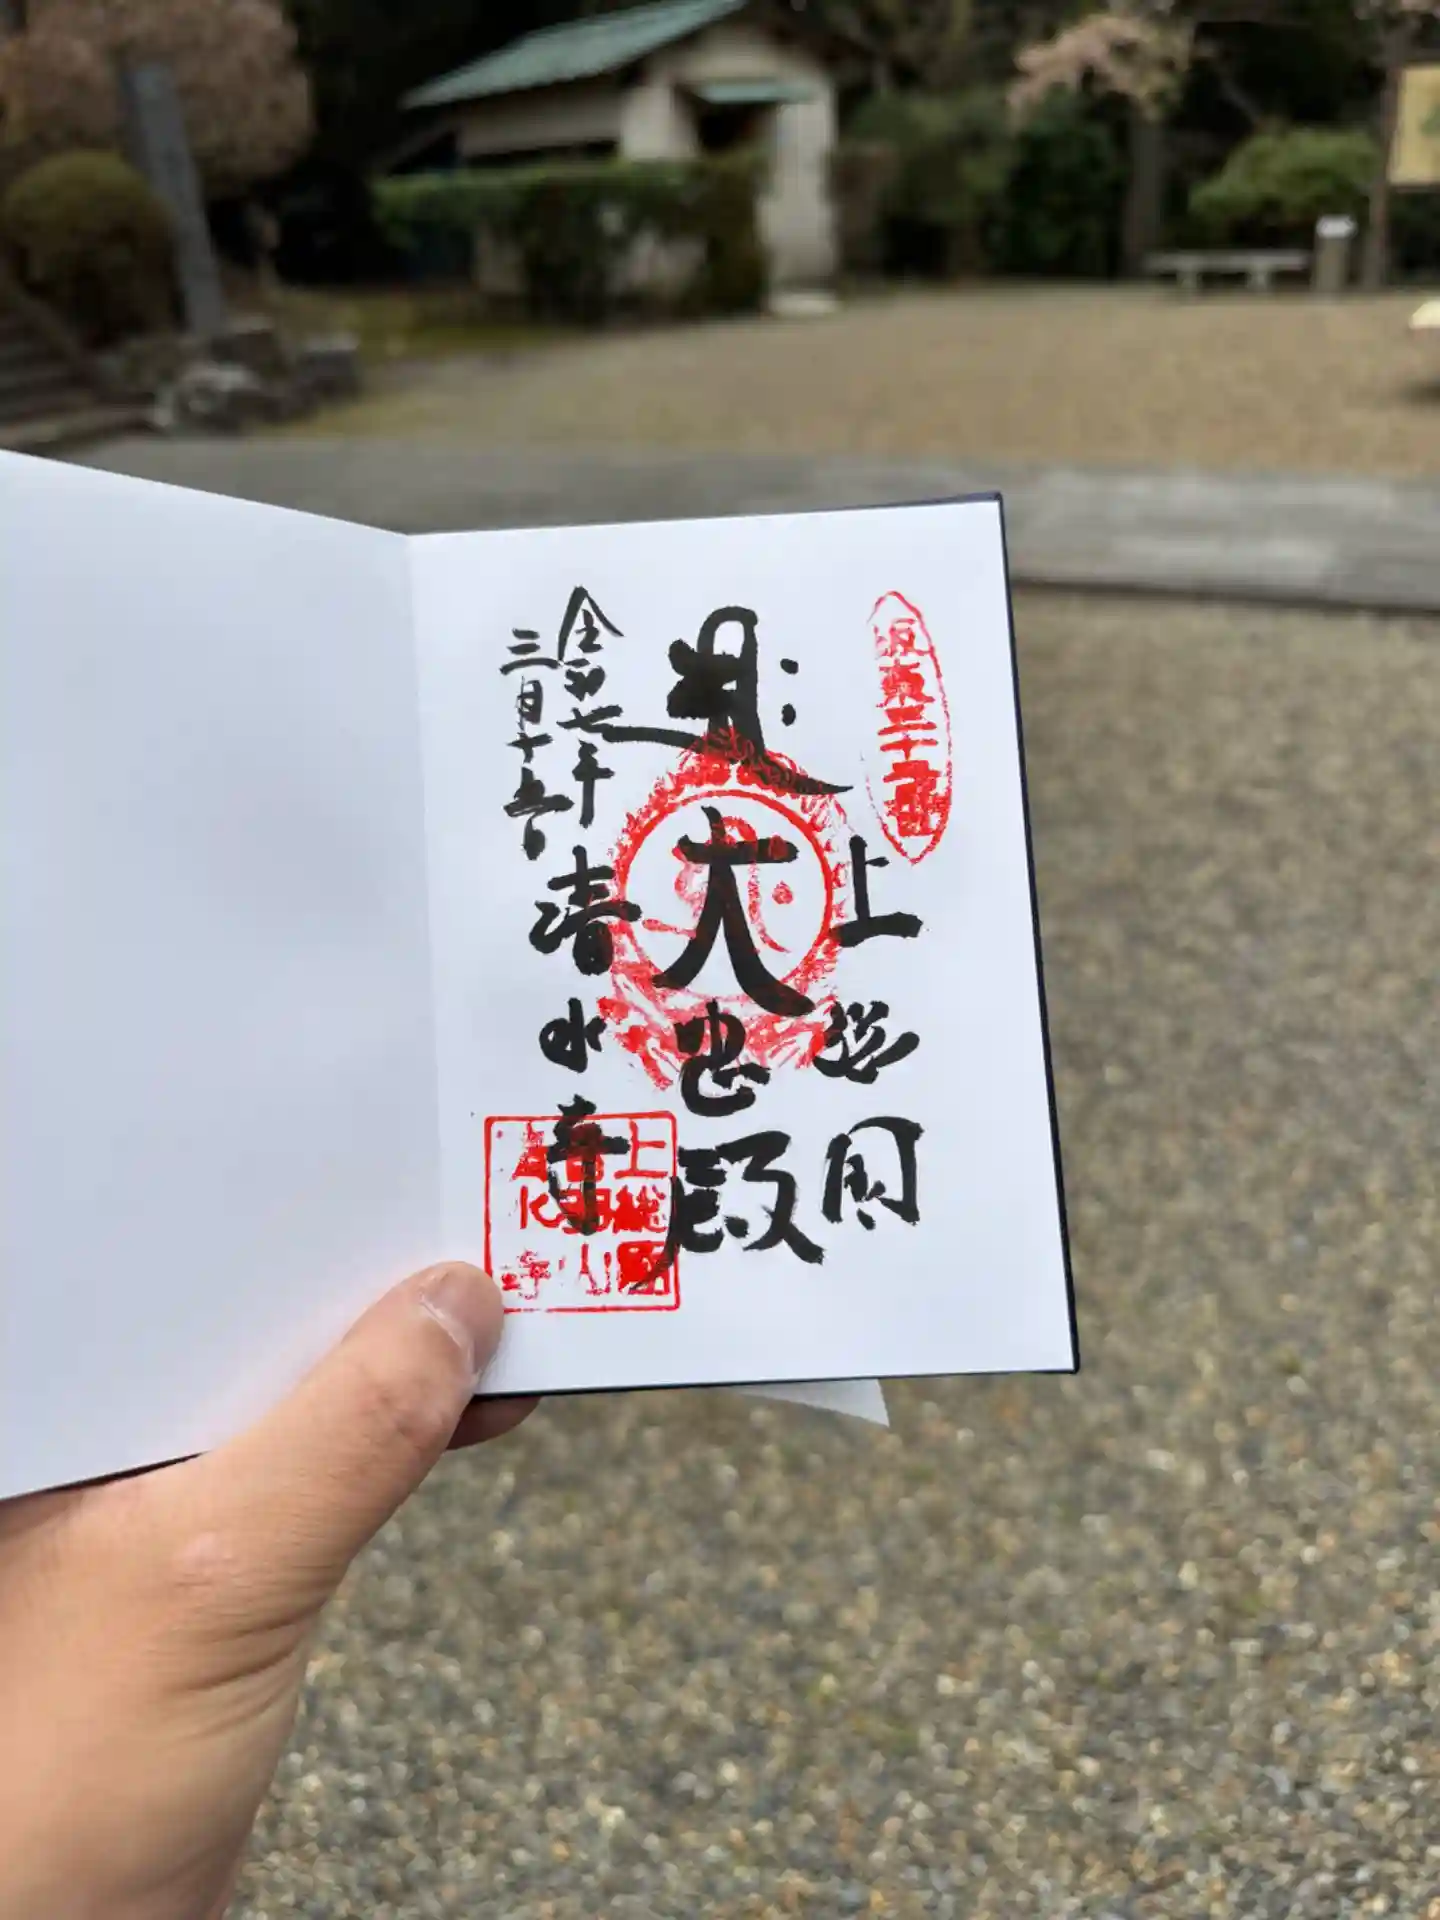 坂東三十二番
上総国
大悲殿
令和七年
三月十五日
清水寺
上総国
音羽山
清水寺